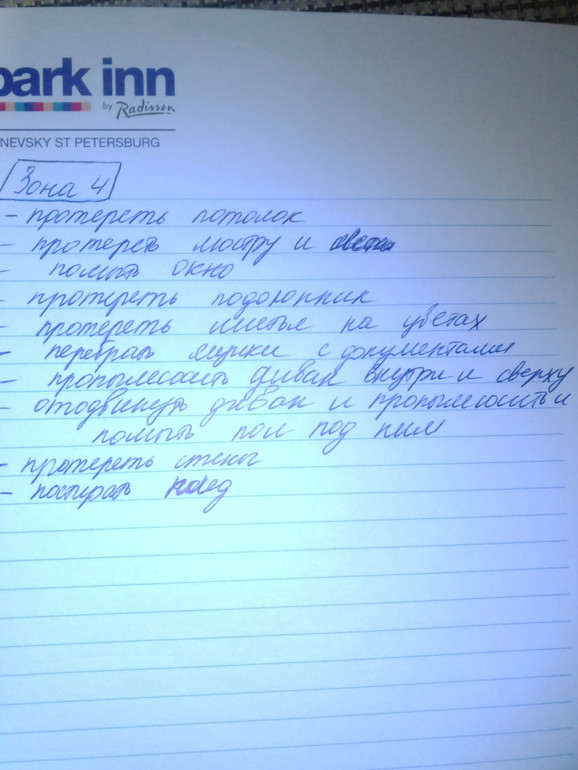 park inn
by Radisson
NEVSKY ST PETERSBURG
Зона 4
- протереть потолок
- протереть люстру и
- помыть окно
- протереть подоконник
- протереть листья на цветах
- перебрать ящики с документами
- пропылесосить диван внутри и сверху
- отодвинуть диван и пропылесосить и
помыть пол под ним
- протереть стены
- постирать